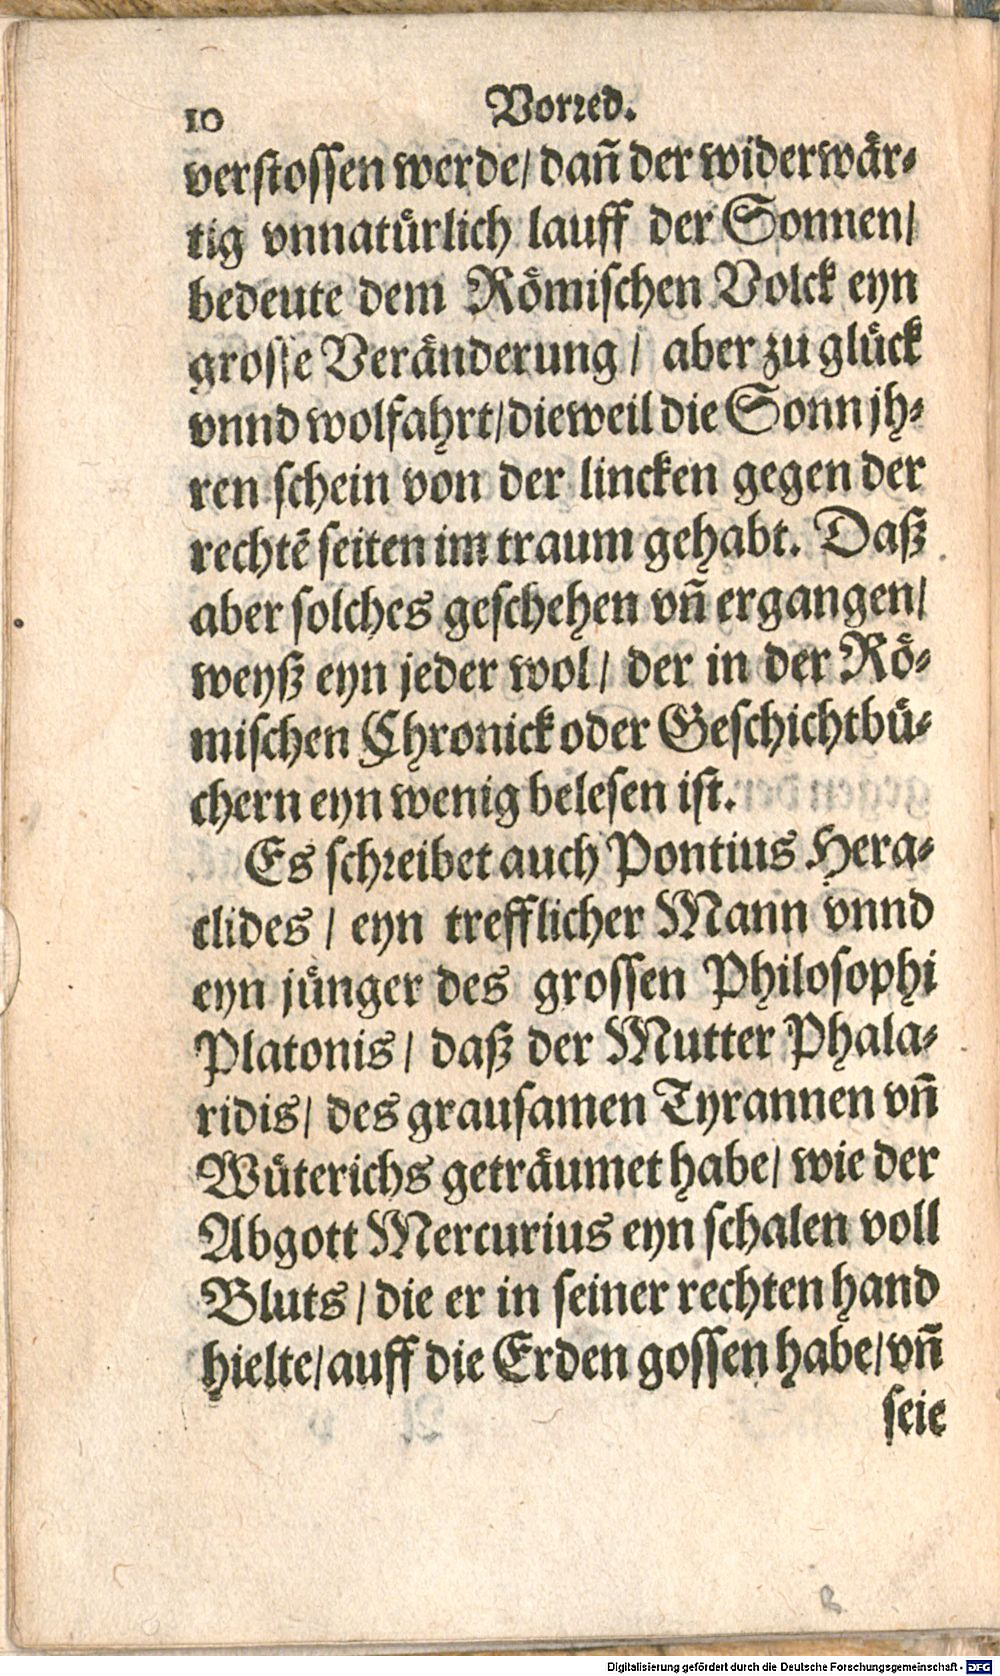 10 Vorꝛed.
verſtoſſen werde/ dañ der widerwaͤr⸗
tig vnnatuͤrlich lauff der Sonnen/
bedeute dem Roͤmiſchen Volck eyn
groſſe Veraͤnderung / aber zu gluͤck
vnnd wolfahrt/dieweil die Sonn jh⸗
ren ſchein von der lincken gegen der
rechtē ſeiten im traum gehabt. Daß
aber ſolches geſchehen vñ ergangen/
weyß eyn jeder wol/ der in der Roͤ⸗
miſchen Chronick oder Geſchichtbuͤ⸗
chern eyn wenig beleſen iſt.
Es ſchꝛeibet auch Pontius Hera⸗
clides / eyn trefflicher Mann vnnd
eyn juͤnger des groſſen Philoſophi
Platonis/ daß der Mutter Phala⸗
ridis/ des grauſamen Tyrannen vñ
Wuͤterichs getraͤumet habe/ wie der
Abgott Mercurius eyn ſchalen voll
Bluts / die er in ſeiner rechten hand
hielte/auff die Erden goſſen habe/vñ
ſeie
Digitalisierung gefördert durch die Deutsche Forschungsgemeinschaft - DFG